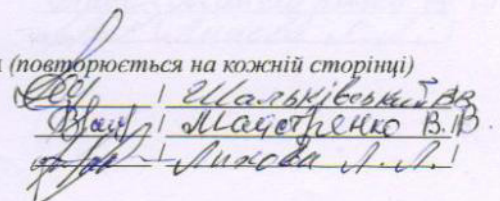 (повторюється на кожній сторінці)
/ Шальківський В.В.
/ Майстренко В.В.
/ Лихова Л.Л. /